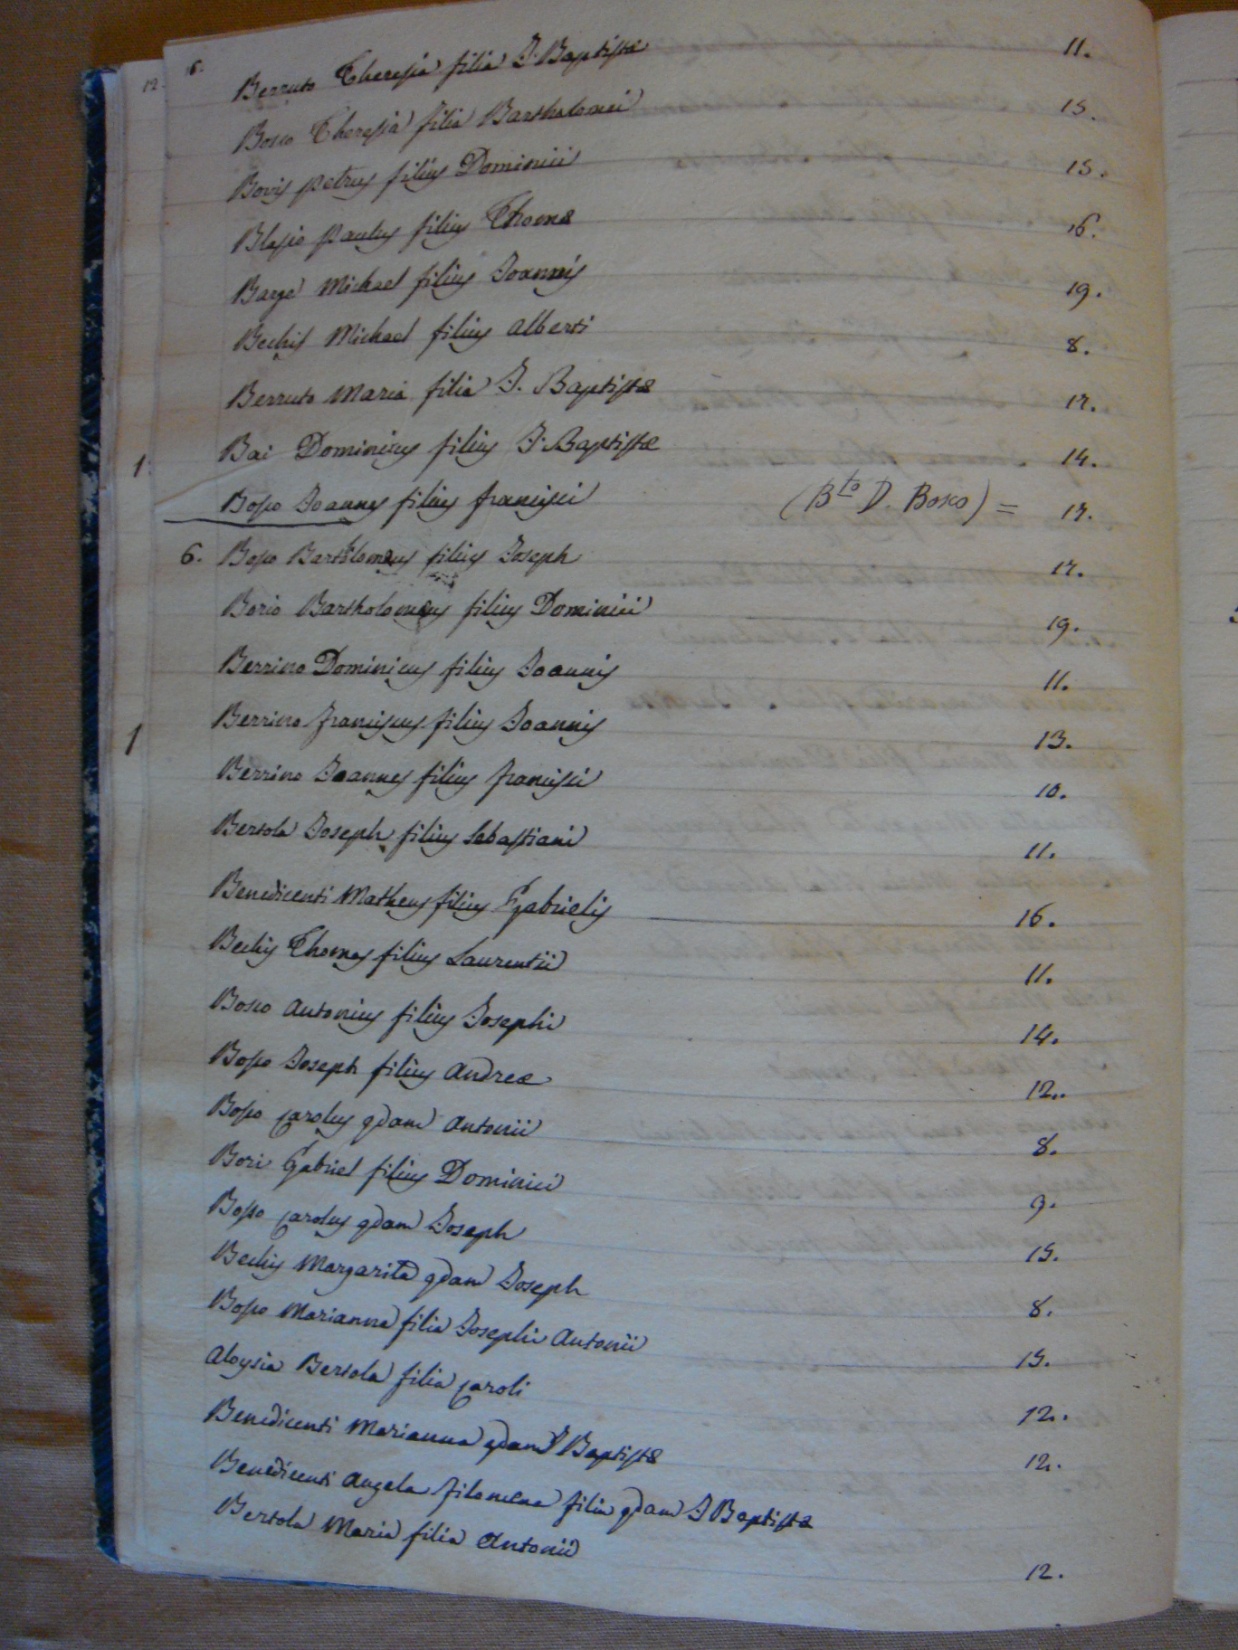 6.
12.
Berruto Theresia filia J. Baptistæ 11.
Bosco Theresia filia Bartholomei 15.
Bovis petrus filius Dominici 15.
Blasio paulus filius Thomæ 16.
Barge Michael filius Joannis 19.
Bechis Michael filius Alberti 8.
Berruto Maria filia J. Baptistæ 12.
1 Bai Dominicus filius J. Baptistæ 14.
Bosco Joannes filius francisci (Bto D. Bosco) = 12.
6. Bosco Bartholomæus filius Joseph 12.
Borio Bartholomæus filius Dominici 19.
Berrino Dominicus filius Joannis 11.
1 Berrino franciscus filius Joannis 13.
Berrino Joannes filius francisci 10.
Bertola Joseph filius Sebastiani 11.
Benedicenti Matheus filius Gabrielis 16.
Bechis Thomas filius Laurentii 11.
Bosco Antonius filius Josephi 14.
Bosco Joseph filius Andreæ 12.
Bosco carolus qdam Antonii 8.
Bori Gabriel filius Dominici 9.
Bosco carolus qdam Joseph 15.
Bechis Margarita qdam Joseph 8.
Bosco Marianna filia Josephi Antonii 15.
Aloysia Bertola filia caroli 12.
Benedicenti Marianna qdam J Baptistæ 12.
Benedicenti Angela filomena filia qdam J Baptistæ
Bertola Maria filia Antonii 12.